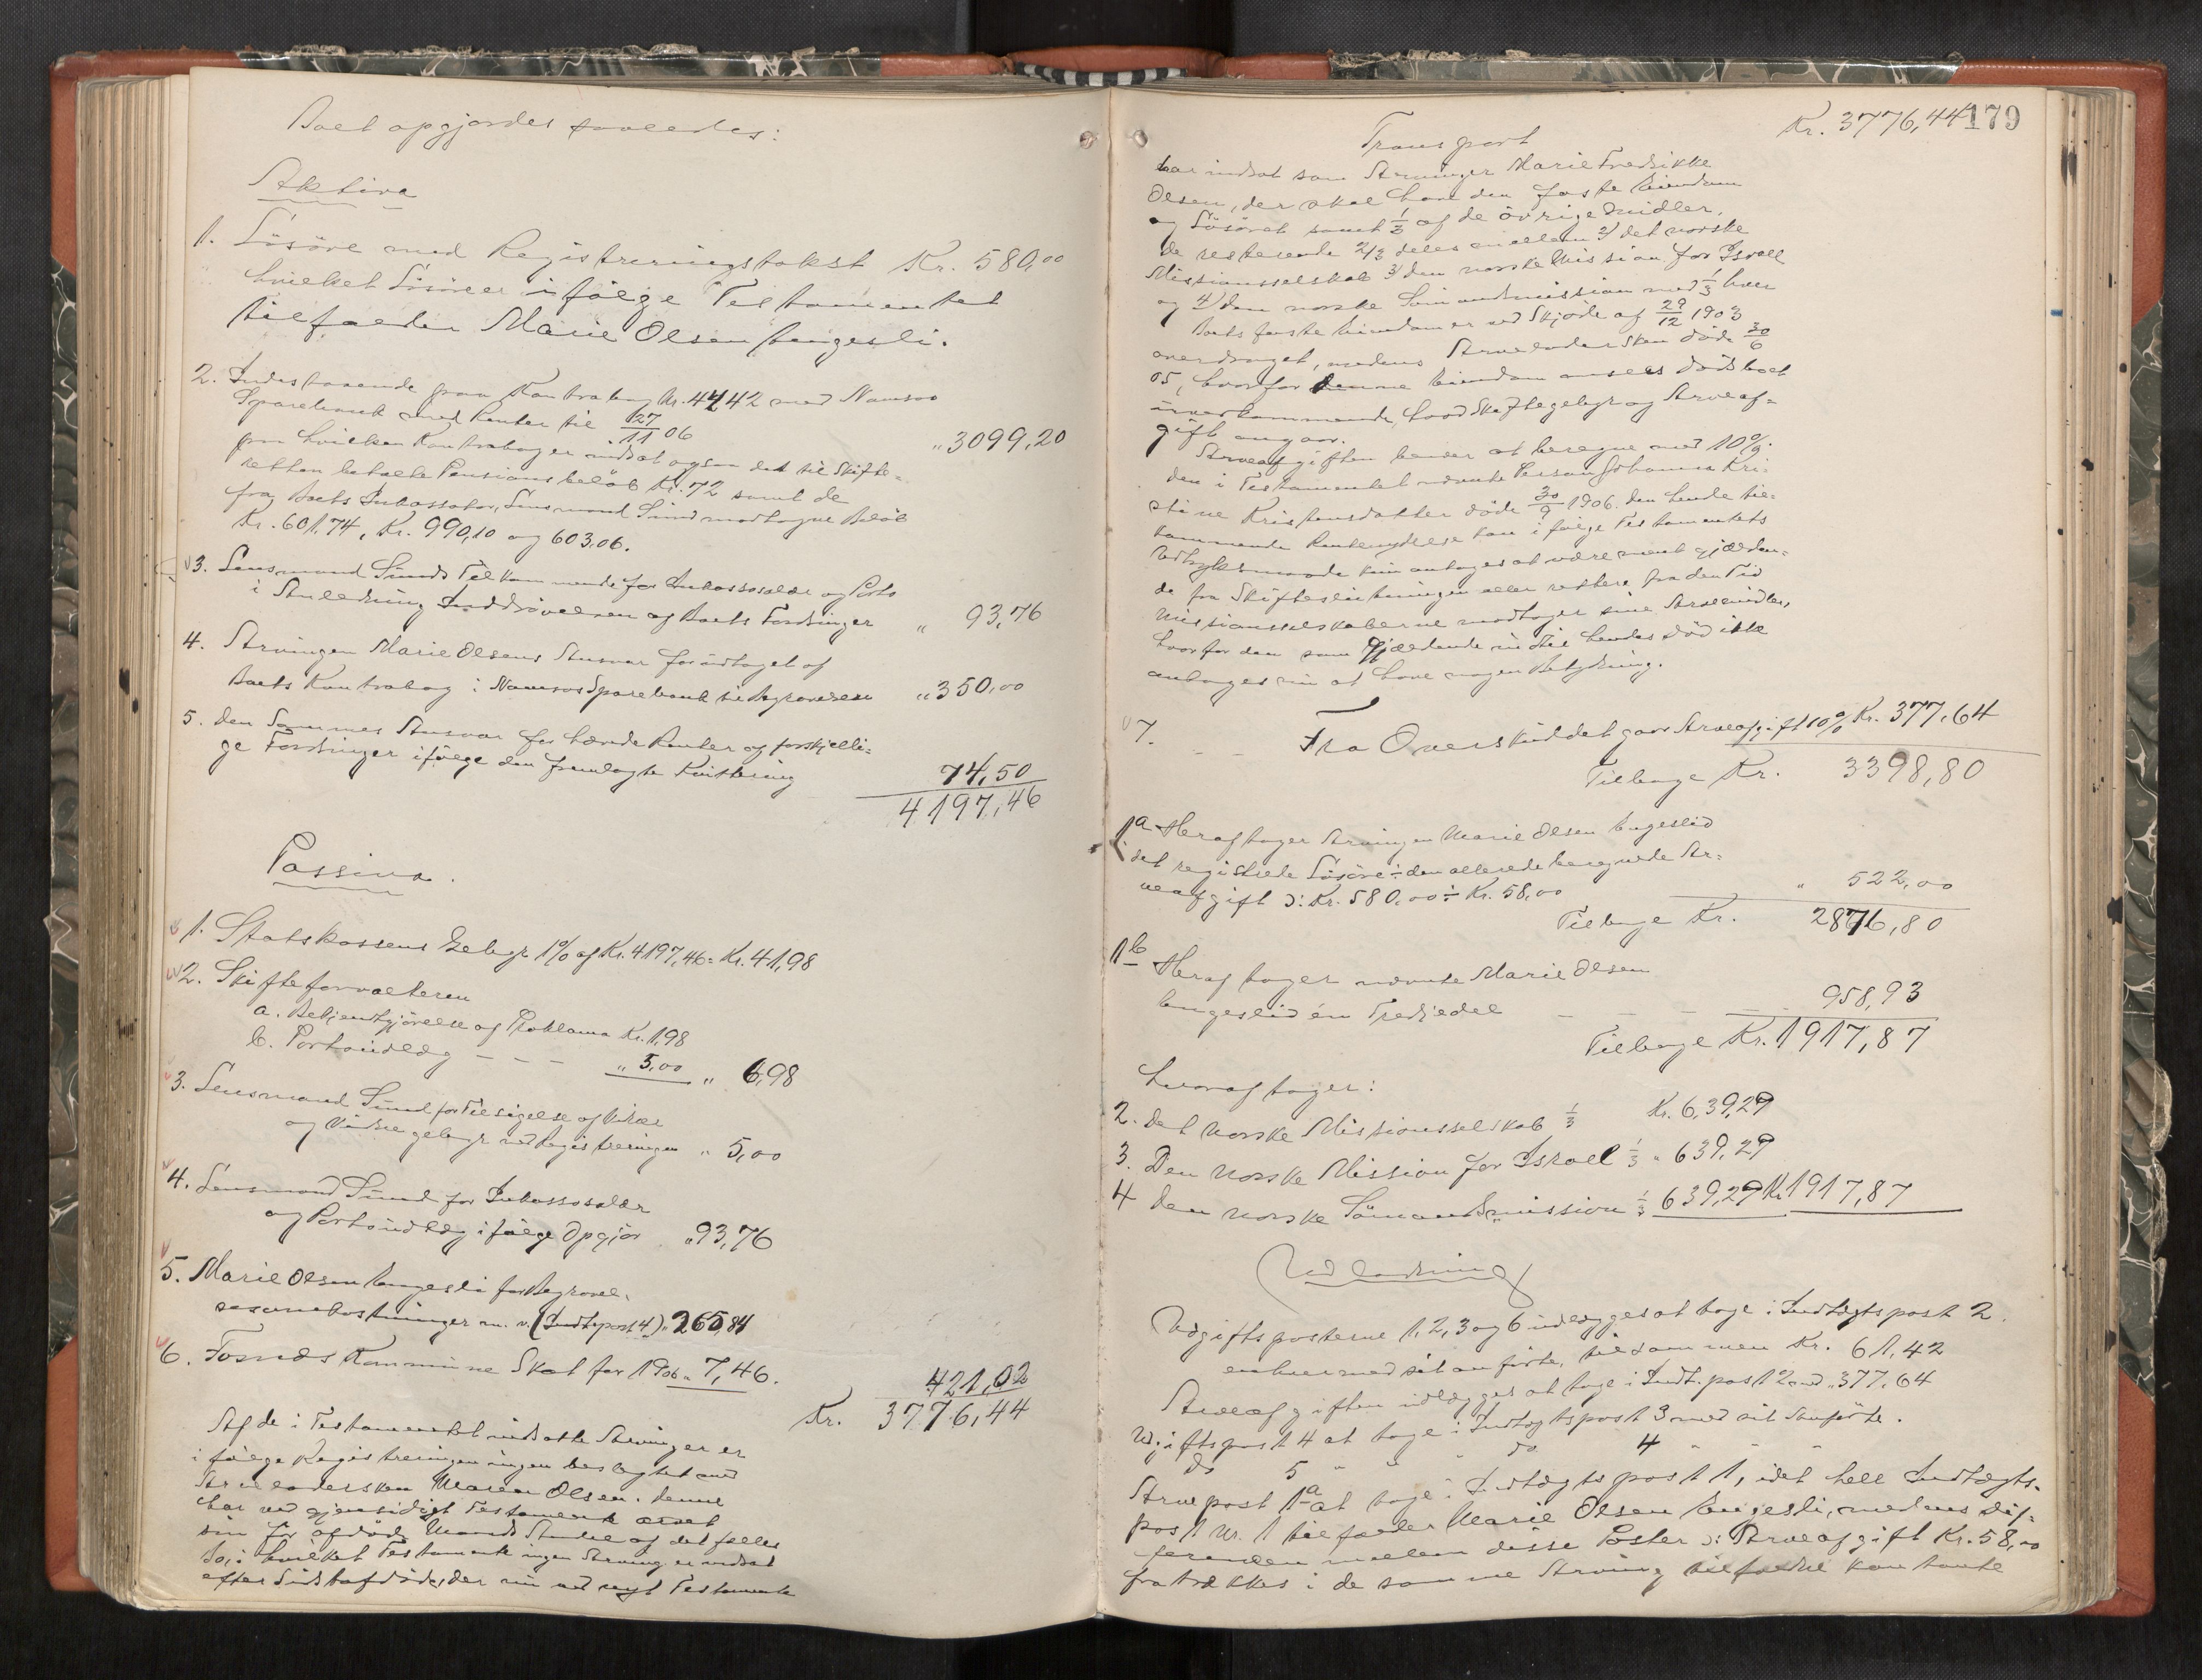 Boet opgjordes saaledes:
Aktiva
1. Lösöre med Registreringstakst Kr. 580,00
hvilket Lösöre ifölge Testamentet
tilfalder Marie Olsen Engesli.
2. Indestaaende paa Kontrabog Nr. 4442 med Namsos
Sparebank med Renter til 27/11 06 " 3099,20
paa hvilken Kontrabog er indsat ogsaa det til Skifte-
retten betalte Pensionsbelöb Kr. 72 samt de
fra Boets Inkassator, Lensmand Sund modtagne Belöb
Kr. 601,74, Kr. 990,10 og 603,06.
3. Lensmand Sunds Tilkommende for Inkassosalær og Porto
i Anledning Inddrivelsen af Boets Fordringer " 93,76
4. Arvingen Marie Olsens Ansvar for udtaget af
Boets Kontrabog i Namsos Sparebank til Begravelsen " 350,00
5. Den Sammes Ansvar for hævede Renter og forskjelli-
ge Fordringer ifölge den fremlagte Kvittering 74,50
4197,46
Passiva.
1. Statskassens Gebyr 1% af Kr. 4197,46 = Kr. 41,98
2. Skifteforvalteren
a. Bekjendtgjörelse af Proklama Kr. 1,98
b. Portoudlæg - - - " 5,00 " 6,98
3. Lensmand Sund for Tilsigelse af Vidner
og Vidnegebyr ved Registreringen " 5,00
4. Lensmand Sund for Inkassosalær
og Portoudlæg ifölge Opgjör " 93,76
5. Marie Olsen Engesli for Begravel-
sesomkostninger m. v. (Indtpost 4) " 265,84
6. Fosnæs Kommune Skat for 1906 " 7,46. 421,02
Kr. 3776,44
Af de i Testamentet indsatte Arvinger er
ifölge Registreringen ingen beslægtet med
Arveladersken Maren Olsen. Denne
har ved gjensidigt Testament arvet
sin før afdöde Mands Andel af det fælles
Bo, i hvilket Testamente ingen Arving er indsat
efter Sidstafdöde, der nu ved nyt Testamente
Transport Kr. 3776,44 179
har indsat som Arvinger Marie Fredrikke
Olsen, der skal have den faste Eiendom
og Lösöret samt 1/3 af de övrige Midler,
de resterende 2/3 deles mellem 2) det norske
Missionsselskab 3) den norske Mission for Israel
og 4) den norske Sömandsmission med 1/3 hver
Boets faste Eiendom er ved Skjöde af 29/12 1903
overdraget, medens Arveladersken döde 30/6
05, hvorfor denne Eiendom ansees Dödsboet
uvedkommende, hvad Skiftegebyr og Arveaf-
gift angaar.
Arveafgiften bliver at beregne med 10%.
Den i Testamentet nævnte Person Johanna Kri-
stine Kristensdatter döde 30/9 1906. Den hende til-
kommende Rentenydelse kan ifölge Testamentets
Udtryksmaade kun antages at være ment gjælden-
de fra Skifteslutningen eller rettere fra den Tid
Missionsselskaberne modtager sine Arvemidler,
hvorfor den som gjældende indtil hendes Död ikke
antages nu at have nogen Betydning.
7. - - Fra Overskuddet gaar Arveafgift 10% Kr. 377,64
Tilbage Kr. 3398,80
1a Heraf tager Arvingen Marie Olsen Engeslid
det registrerede Lösöre ÷ den allerede beregnede Ar-
veafgift ɔ: Kr. 580,00 ÷ Kr. 58,00 " 522,00
Tilbage Kr. 2876,80
1b Heraf tager nævnte Marie Olsen
Engeslid én Trediedel - - - - 958,93
Tilbage Kr. 1917,87
hvoraf tager:
2. Det norske Missionsselskab 1/3 Kr. 639,29
3. Den norske Mission for Israel 1/3 " 639,29
4 Den norske Sömandsmission 1/3 639,29 Kr 1917,87
Udlodning
Udgiftsposterne 1, 2, 3 og 6 udlægges at tage i Indtægtspost 2.
enhver med sit anförte, tilsammen Kr. 61,42
Arveafgiften udlægges at tage i Indt. post 2 med " 377,64
Udgiftspost 4 at tage i Indtægtspost 3 med sit Anförte.
do 5 " " " do 4 " " "
Arvepost 1a at tage i Indtægtspost 1, idet hele Indtægts-
post Nr. 1 tilfalder Marie Olsen Engesli, medens Dif-
ferencen mellem disse Poster ɔ: Arveafgift Kr. 58,00
fratrækkes i de samme Arving tilfaldne kontante